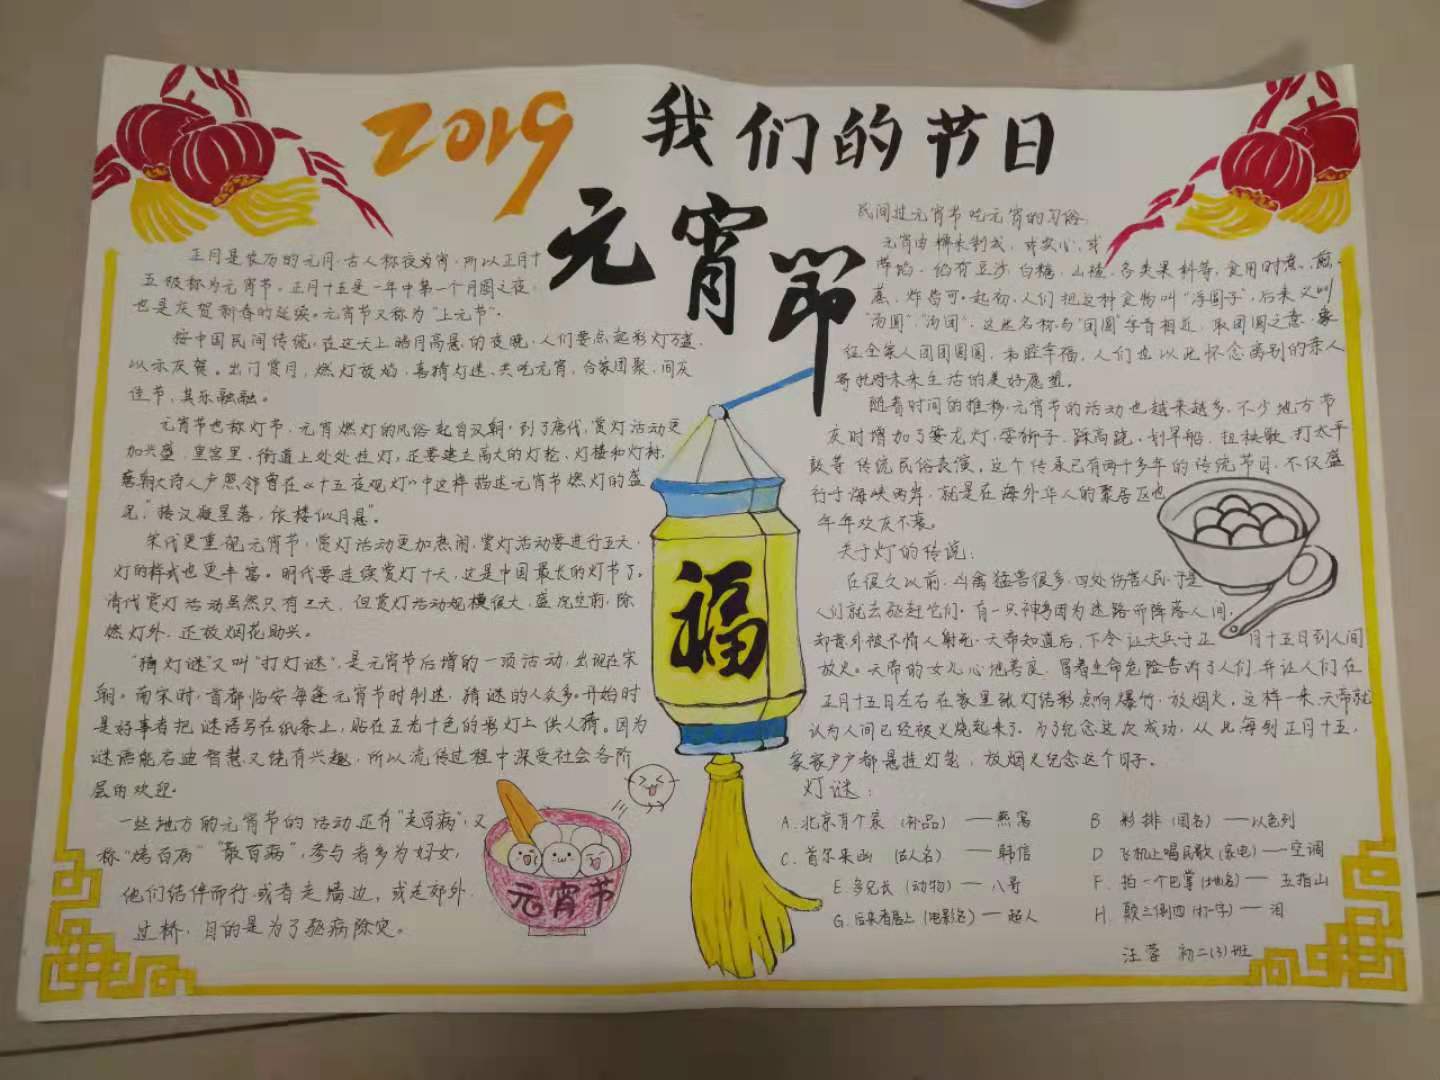 2019 我们的节日
元宵节
正月是农历的元月,古人称夜为宵,所以正月十
五夜称为元宵节。正月十五是一年中第一个月圆之夜,
也是庆贺新春的延续。元宵节又称为"上元节"。
按中国民间传统,在这天上皓月高悬的夜晚,人们要点起彩灯万盏,
以示庆贺。出门赏月,燃灯放焰,喜猜灯谜,共吃元宵,合家团聚,同庆
佳节,其乐融融。
元宵节也称灯节,元宵燃灯的风俗起自汉朝,到了唐代,赏灯活动更
加兴盛,皇宫里、街道上处处挂灯,还要建立高大的灯轮、灯楼和灯树,
唐朝大诗人卢照邻曾在《十五夜观灯》中这样描述元宵节燃灯的盛
况,"接汉疑星落,依楼似月悬"。
宋代更重视元宵节,赏灯活动更加热闹,赏灯活动要进行五天,
灯的样式也更丰富。明代要连续赏灯十天,这是中国最长的灯节了。
清代赏灯活动虽然只有三天,但赏灯活动规模很大,盛况空前,除
燃灯外,还放烟花助兴。
"猜灯谜"又叫"打灯谜",是元宵节后增的一项活动,出现在宋
朝。南宋时,首都临安每逢元宵节时制迷,猜谜的人众多。开始时
是好事者把谜语写在纸条上,贴在五光十色的彩灯上供人猜。因为
谜语能启迪智慧又饶有兴趣,所以流传过程中深受社会各阶
层的欢迎。
一些地方的元宵节的活动还有"走百病",又
称"烤百病""散百病",参与者多为妇女,
他们结伴而行或者走墙边,或走郊外
过桥,目的是为了驱病除灾。
元宵节
福
民间过元宵节吃元宵的习俗:
元宵由糯米制成,或实心,或
带馅,馅有豆沙、白糖、山楂、各类果料等,食用时煮、煎、
蒸、炸皆可。起初,人们把这种食物叫"浮圆子",后来又叫
"汤圆","汤团",这些名称与"团圆"字音相近,取团圆之意,象
征全家人团团圆圆,和睦幸福,人们也以此怀念离别的亲人
寄托对未来生活的美好愿望。
随着时间的推移,元宵节的活动也越来越多,不少地方节
庆时增加了耍龙灯、耍狮子、踩高跷、划旱船、扭秧歌、打太平
鼓等传统民俗表演。这个传承已有两千多年的传统节日,不仅盛
行于海峡两岸,就是在海外华人的聚居区也
年年欢庆不衰。
关于灯的传说:
在很久以前,凶禽猛兽很多,四处伤害人民,于是
人们就去驱赶它们。有一只神鸟因为迷路而降落人间,
却意外被不情人射死,天帝知道后,下令让天兵于正月十五日到人间
放火。天帝的女儿心地善良,冒着生命危险告诉了人们,并让人们在
正月十五日左右在家里张灯结彩点响爆竹,放烟火。这样一来,天帝就
认为人间已经被火烧起来了。为了纪念这次成功,从此每到正月十五,
家家户户都悬挂灯笼,放烟火纪念这个日子。
灯谜:
A.北京有个家 (补品) — 燕窝 B. 彩排 (国名) — 以色列
C.首尔来函 (古人名) — 韩信 D 飞机上唱民歌 (家电) — 空调
E.多兄长 (动物) — 八哥 F. 拍一个巴掌 (地名) — 五指山
G.后来者居上 (电影名) — 超人 H. 颠三倒四 (打一字) — 泪
汪蓉 初二(3)班